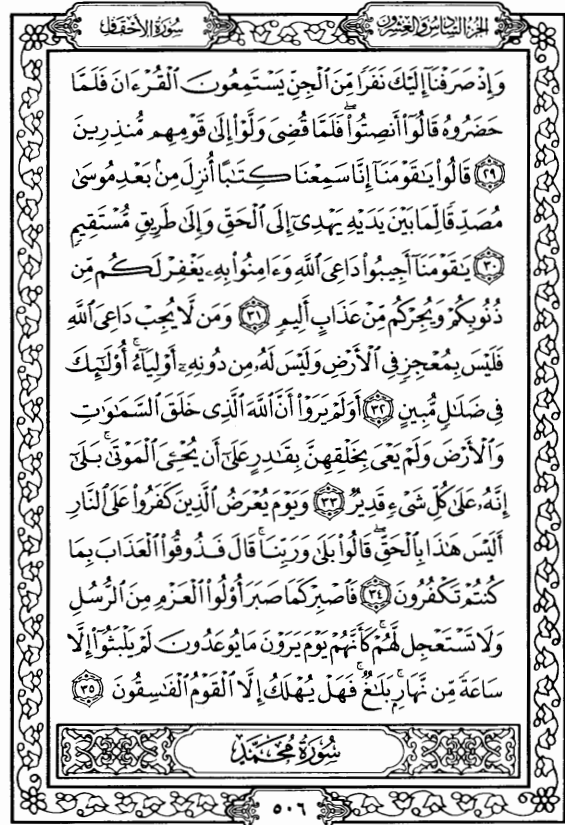 الجزء السادس والعشرون
سورة الأحقاف
وَإِذْ صَرَفْنَآ إِلَيْكَ نَفَرًا مِّنَ ٱلْجِنِّ يَسْتَمِعُونَ ٱلْقُرْءَانَ فَلَمَّا
حَضَرُوهُ قَالُوٓا۟ أَنصِتُوا۟ ۖ فَلَمَّا قُضِىَ وَلَّوْا۟ إِلَىٰ قَوْمِهِم مُّنذِرِينَ
﴿٢٩﴾ قَالُوا۟ يَـٰقَوْمَنَآ إِنَّا سَمِعْنَا كِتَـٰبًا أُنزِلَ مِنۢ بَعْدِ مُوسَىٰ
مُصَدِّقًا لِّمَا بَيْنَ يَدَيْهِ يَهْدِىٓ إِلَى ٱلْحَقِّ وَإِلَىٰ طَرِيقٍ مُّسْتَقِيمٍ
﴿٣٠﴾ يَـٰقَوْمَنَآ أَجِيبُوا۟ دَاعِىَ ٱللَّهِ وَءَامِنُوا۟ بِهِۦ يَغْفِرْ لَكُم مِّن
ذُنُوبِكُمْ وَيُجِرْكُم مِّنْ عَذَابٍ أَلِيمٍ ﴿٣١﴾ وَمَن لَّا يُجِبْ دَاعِىَ ٱللَّهِ
فَلَيْسَ بِمُعْجِزٍ فِى ٱلْأَرْضِ وَلَيْسَ لَهُۥ مِن دُونِهِۦٓ أَوْلِيَآءُ ۚ أُو۟لَـٰٓئِكَ
فِى ضَلَـٰلٍ مُّبِينٍ ﴿٣٢﴾ أَوَلَمْ يَرَوْا۟ أَنَّ ٱللَّهَ ٱلَّذِى خَلَقَ ٱلسَّمَـٰوَٰتِ
وَٱلْأَرْضَ وَلَمْ يَعْىَ بِخَلْقِهِنَّ بِقَـٰدِرٍ عَلَىٰٓ أَن يُحْـِۧىَ ٱلْمَوْتَىٰ ۚ بَلَىٰٓ
إِنَّهُۥ عَلَىٰ كُلِّ شَىْءٍ قَدِيرٌ ﴿٣٣﴾ وَيَوْمَ يُعْرَضُ ٱلَّذِينَ كَفَرُوا۟ عَلَى ٱلنَّارِ
أَلَيْسَ هَـٰذَا بِٱلْحَقِّ ۖ قَالُوا۟ بَلَىٰ وَرَبِّنَا ۚ قَالَ فَذُوقُوا۟ ٱلْعَذَابَ بِمَا
كُنتُمْ تَكْفُرُونَ ﴿٣٤﴾ فَٱصْبِرْ كَمَا صَبَرَ أُو۟لُوا۟ ٱلْعَزْمِ مِنَ ٱلرُّسُلِ
وَلَا تَسْتَعْجِل لَّهُمْ ۚ كَأَنَّهُمْ يَوْمَ يَرَوْنَ مَا يُوعَدُونَ لَمْ يَلْبَثُوٓا۟ إِلَّا
سَاعَةً مِّن نَّهَارٍۭ ۚ بَلَـٰغٌ ۚ فَهَلْ يُهْلَكُ إِلَّا ٱلْقَوْمُ ٱلْفَـٰسِقُونَ ﴿٣٥﴾
سُورَةُ مُحَمَّدٍ
٥٠٦